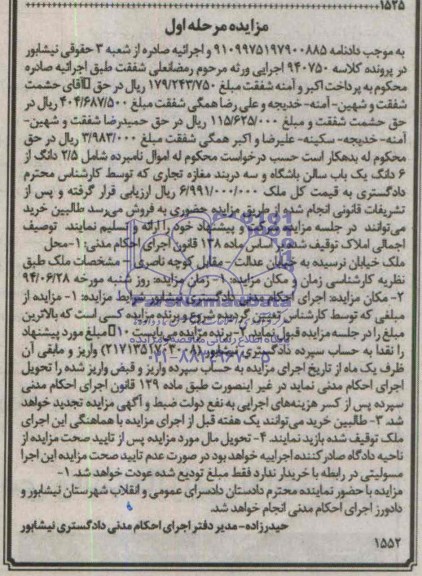 ۱۵۲۵
مزایده مرحله اول
به موجب دادنامه ۹۱۰۹۹۷۵۱۹۷۹۰۰۸۸۵ و اجرائیه صادره از شعبه ۳ حقوقی نیشابور
در پرونده کلاسه ۹۴۰۷۵۰ اجرایی ورثه مرحوم رمضانعلی شفقت طبق اجرائیه صادره
محکوم به پرداخت اکبر و آمنه شفقت مبلغ ۱۷۹/۲۴۳/۷۵۰ ریال در حق آقای حشمت
شفقت و شهین- آمنه- خدیجه و علی رضا همگی شفقت مبلغ ۴۰۴/۶۸۷/۵۰۰ ریال در
حق حشمت شفقت و مبلغ ۱۱۵/۶۲۵/۰۰۰ ریال در حق حمیدرضا شفقت و شهین-
آمنه- خدیجه- سکینه- علیرضا و اکبر همگی شفقت مبلغ ۳/۹۸۳/۰۰۰ ریال در حق
محکوم له بدهکار است حسب درخواست محکوم له اموال نامبرده شامل ۲/۵ دانگ از
۶ دانگ یک باب سالن باشگاه و سه دربند مغازه تجاری که توسط کارشناس محترم
دادگستری به قیمت کل ملک ۶/۹۹۱/۰۰۰/۰۰۰ ریال ارزیابی قرار گرفته و پس از
تشریفات قانونی انجام شده از طریق مزایده حضوری به فروش می‌رسد طالبین خرید
می‌توانند در جلسه مزایده شرکت و پیشنهاد خود را ارائه و تسلیم نمایند. توصیف
اجمالی املاک توقیف شده بر اساس ماده ۱۳۸ قانون اجرای احکام مدنی: ۱-محل
ملک خیابان نرسیده به خیابان عدالت- مقابل کوچه ناصری - مشخصات ملک طبق
نظریه کارشناسی زمان و مکان مزایده: ۱- زمان مزایده: روز شنبه مورخه ۹۴/۰۶/۲۸
۲- مکان مزایده: اجرای احکام مدنی دادگستری نیشابور شرایط مزایده: ۱- مزایده از
مبلغی که توسط کارشناس تعیین گردیده شروع و برنده مزایده کسی است که بالاترین
مبلغ را در جلسه مزایده قبول نماید. ۲- برنده مزایده می‌بایست ۱۰ مبلغ مورد پیشنهاد
را نقدا به حساب سپرده دادگستری نیشابور واریز و مابقی آن
ظرف یک ماه از تاریخ اجرای مزایده به حساب سپرده واریز و قبض واریز شده را تحویل
اجرای احکام مدنی نماید در غیر اینصورت طبق ماده ۱۲۹ قانون اجرای احکام مدنی
سپرده پس از کسر هزینه‌های اجرایی به نفع دولت ضبط و آگهی مزایده تجدید خواهد
شد. ۳- طالبین خرید می‌توانند یک هفته قبل از اجرای مزایده با هماهنگی این اجرای
ملک توقیف شده بازدید نمایند. ۴- تحویل مال مورد مزایده پس از تایید صحت مزایده از
ناحیه دادگاه صادر کننده اجراییه خواهد بود در صورت عدم تایید صحت مزایده این اجرا
مسولیتی در رابطه با خریدار ندارد فقط مبلغ تودیع شده عودت خواهد شد. ۱-
مزایده با حضور نماینده محترم دادستان دادسرای عمومی و انقلاب شهرستان نیشابور و
دادورز اجرای احکام مدنی انجام خواهد شد.
حیدرزاده- مدیر دفتر اجرای احکام مدنی دادگستری نیشابور
۱۵۵۲